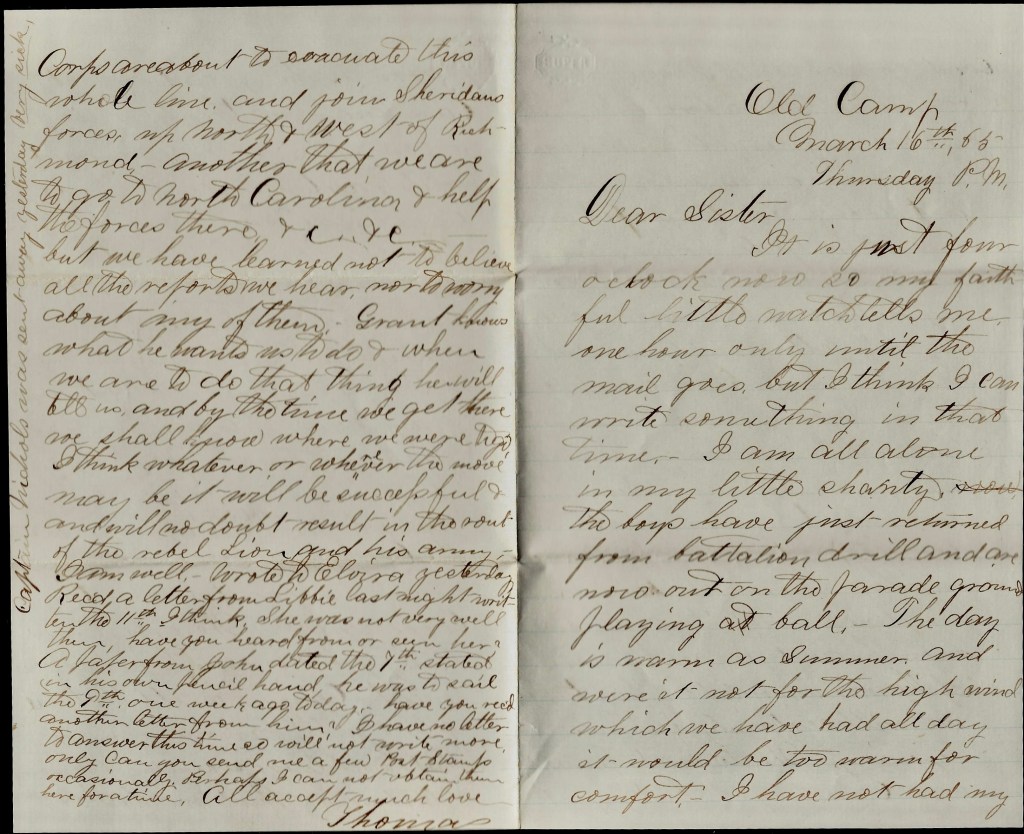 Old Camp
March 16th, 65
Thursday P.M.
Dear Sister
It is just four
oclock now so my faith
ful little watch tells me,
one hour only until the
mail goes, but I think I can
write something in that
time,- I am all alone
in my little shanty,
the boys have just returned
from battalion drill and are
now out on the parade ground
playing at ball,- The day
is warm as Summer and
were it not for the high wind
which we have had all day
it would be too warm for
comfort- I have not had my
Corps are about to evacuate this
whole line and join Sheridans
forces, up North & West of Rich-
mond,- another that we are
to go to North Carolina & help
the forces there, &c., &c.
but we have learned not to believe
all the reports we hear, nor to worry
about any of them,- Grant knows
what he wants us to do & when
we are to do that thing he will
tell us, and by the time we get there
we shall know where we were to go
I think whatever or whenever the move
may be it will be successful &
and will no doubt result in the rout
of the rebel Lion and his army,-
I am well,- wrote to Elvira yesterday
Recd, a letter from Libbie last night writ-
ten the 11th I think, She was not very well
then, have you heard from or seen her?
A paper from John dated the 7th stated
in his own pencil hand, he was to sail
the 9th one week ago today,- have you recd
another letter from him? I have no letter
to answer this time so will not write more,
only can you send me a few Post Stamps
occasionally. Perhaps I can not obtain them
here for a time, All accept much love
Thomas
Capten Nichols was sent away yesterday very sick,